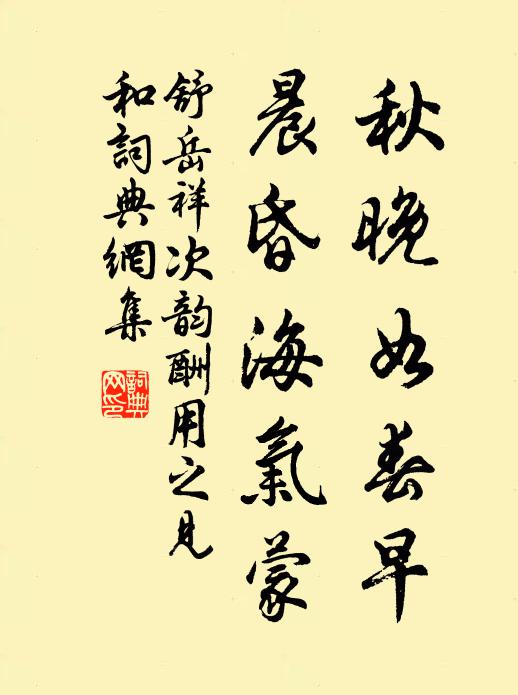 秋晚如春早
晨昏海氣蒙
舒岳祥次韵酬用之見
和詞典網集
詞典網印